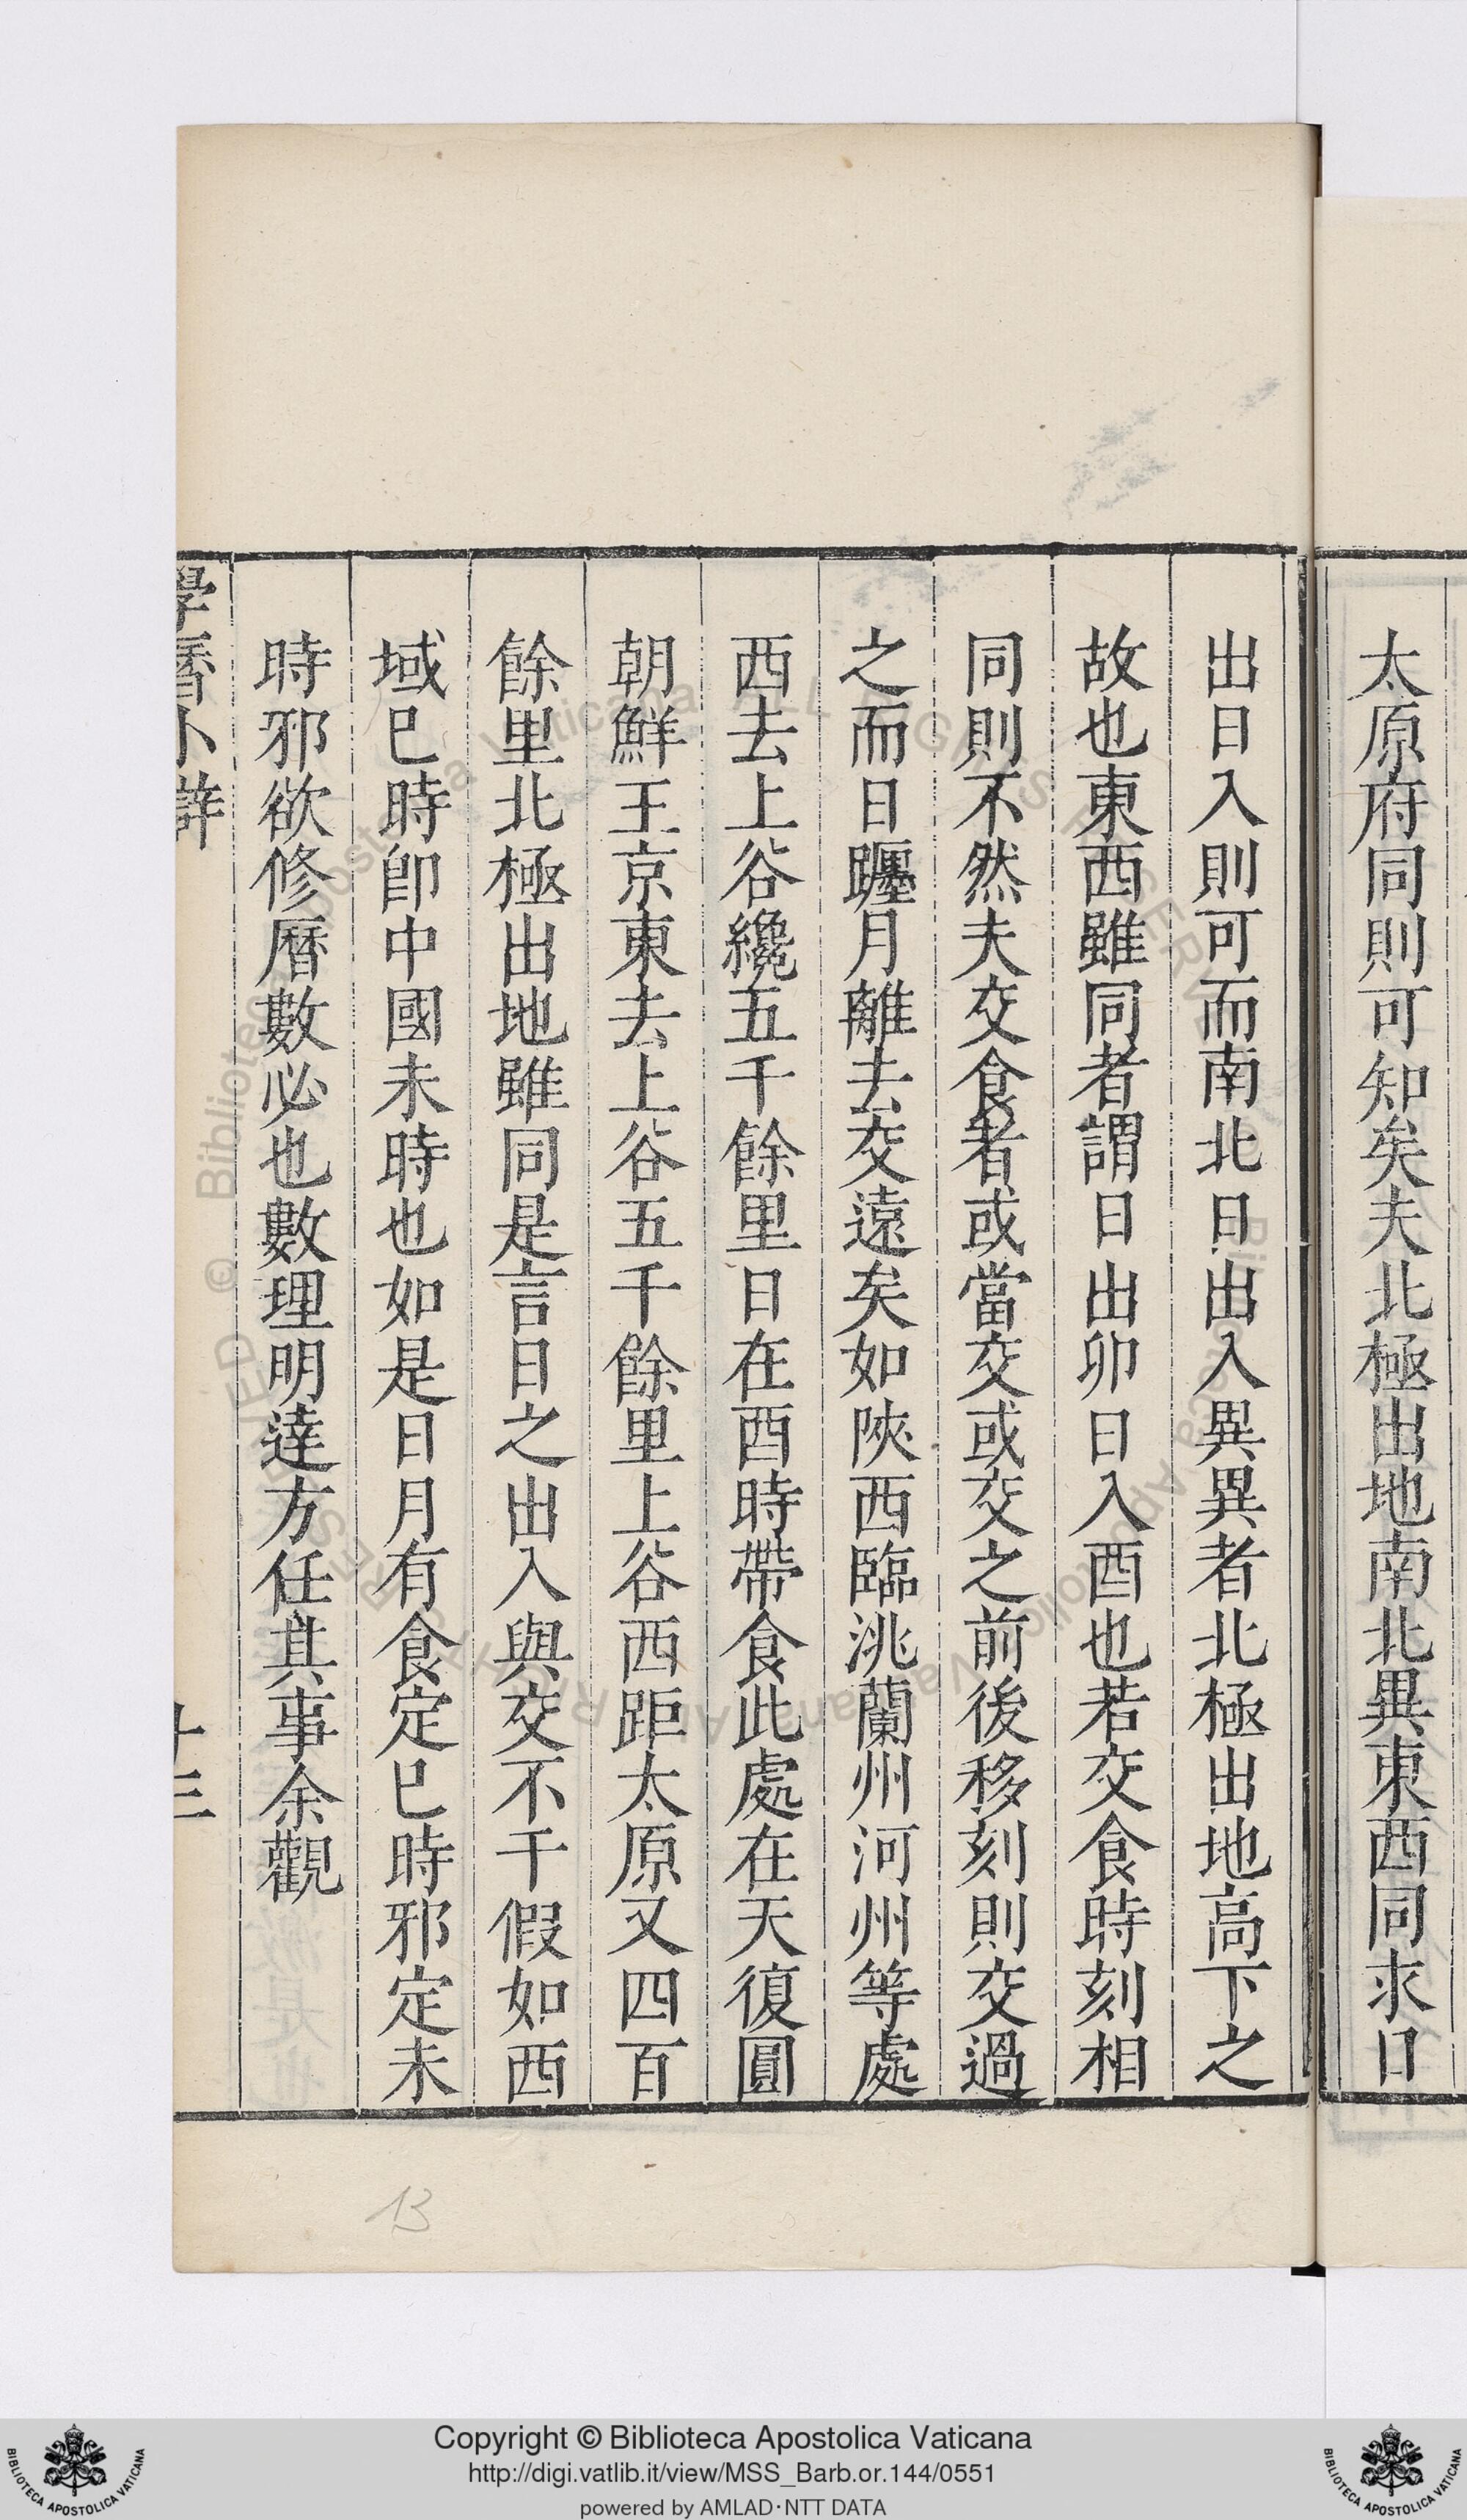 太原府同則可知矣夫北極出地南北異東西同求日
出日入則可而南北日出入異異者北極出地高下之
故也東西雖同者謂日出卯日入酉也若交食時刻相
同則不然夫交食者或當交或交之前後移刻則交過
之而日躔月離去交遠矣如陝西臨洮蘭州河州等處
西去上谷纔五千餘里日在酉時帶食此處在天復圓
朝鮮王京東去上谷五千餘里上谷西距太原又四百
餘里北極出地雖同是言日之出入與交不干假如西
域巳時卽中國未時也如是日月有食定巳時邪定未
時邪欲修曆數必也數理明達方任其事余觀
學曆小辯
十三
13
Copyright © Biblioteca Apostolica Vaticana
http://digi.vatlib.it/view/MSS_Barb.or.144/0551
powered by AMLAD·NTT DATA
BIBLIOTECA APOSTOLICA VATICANA
BIBLIOTECA APOSTOLICA VATICANA